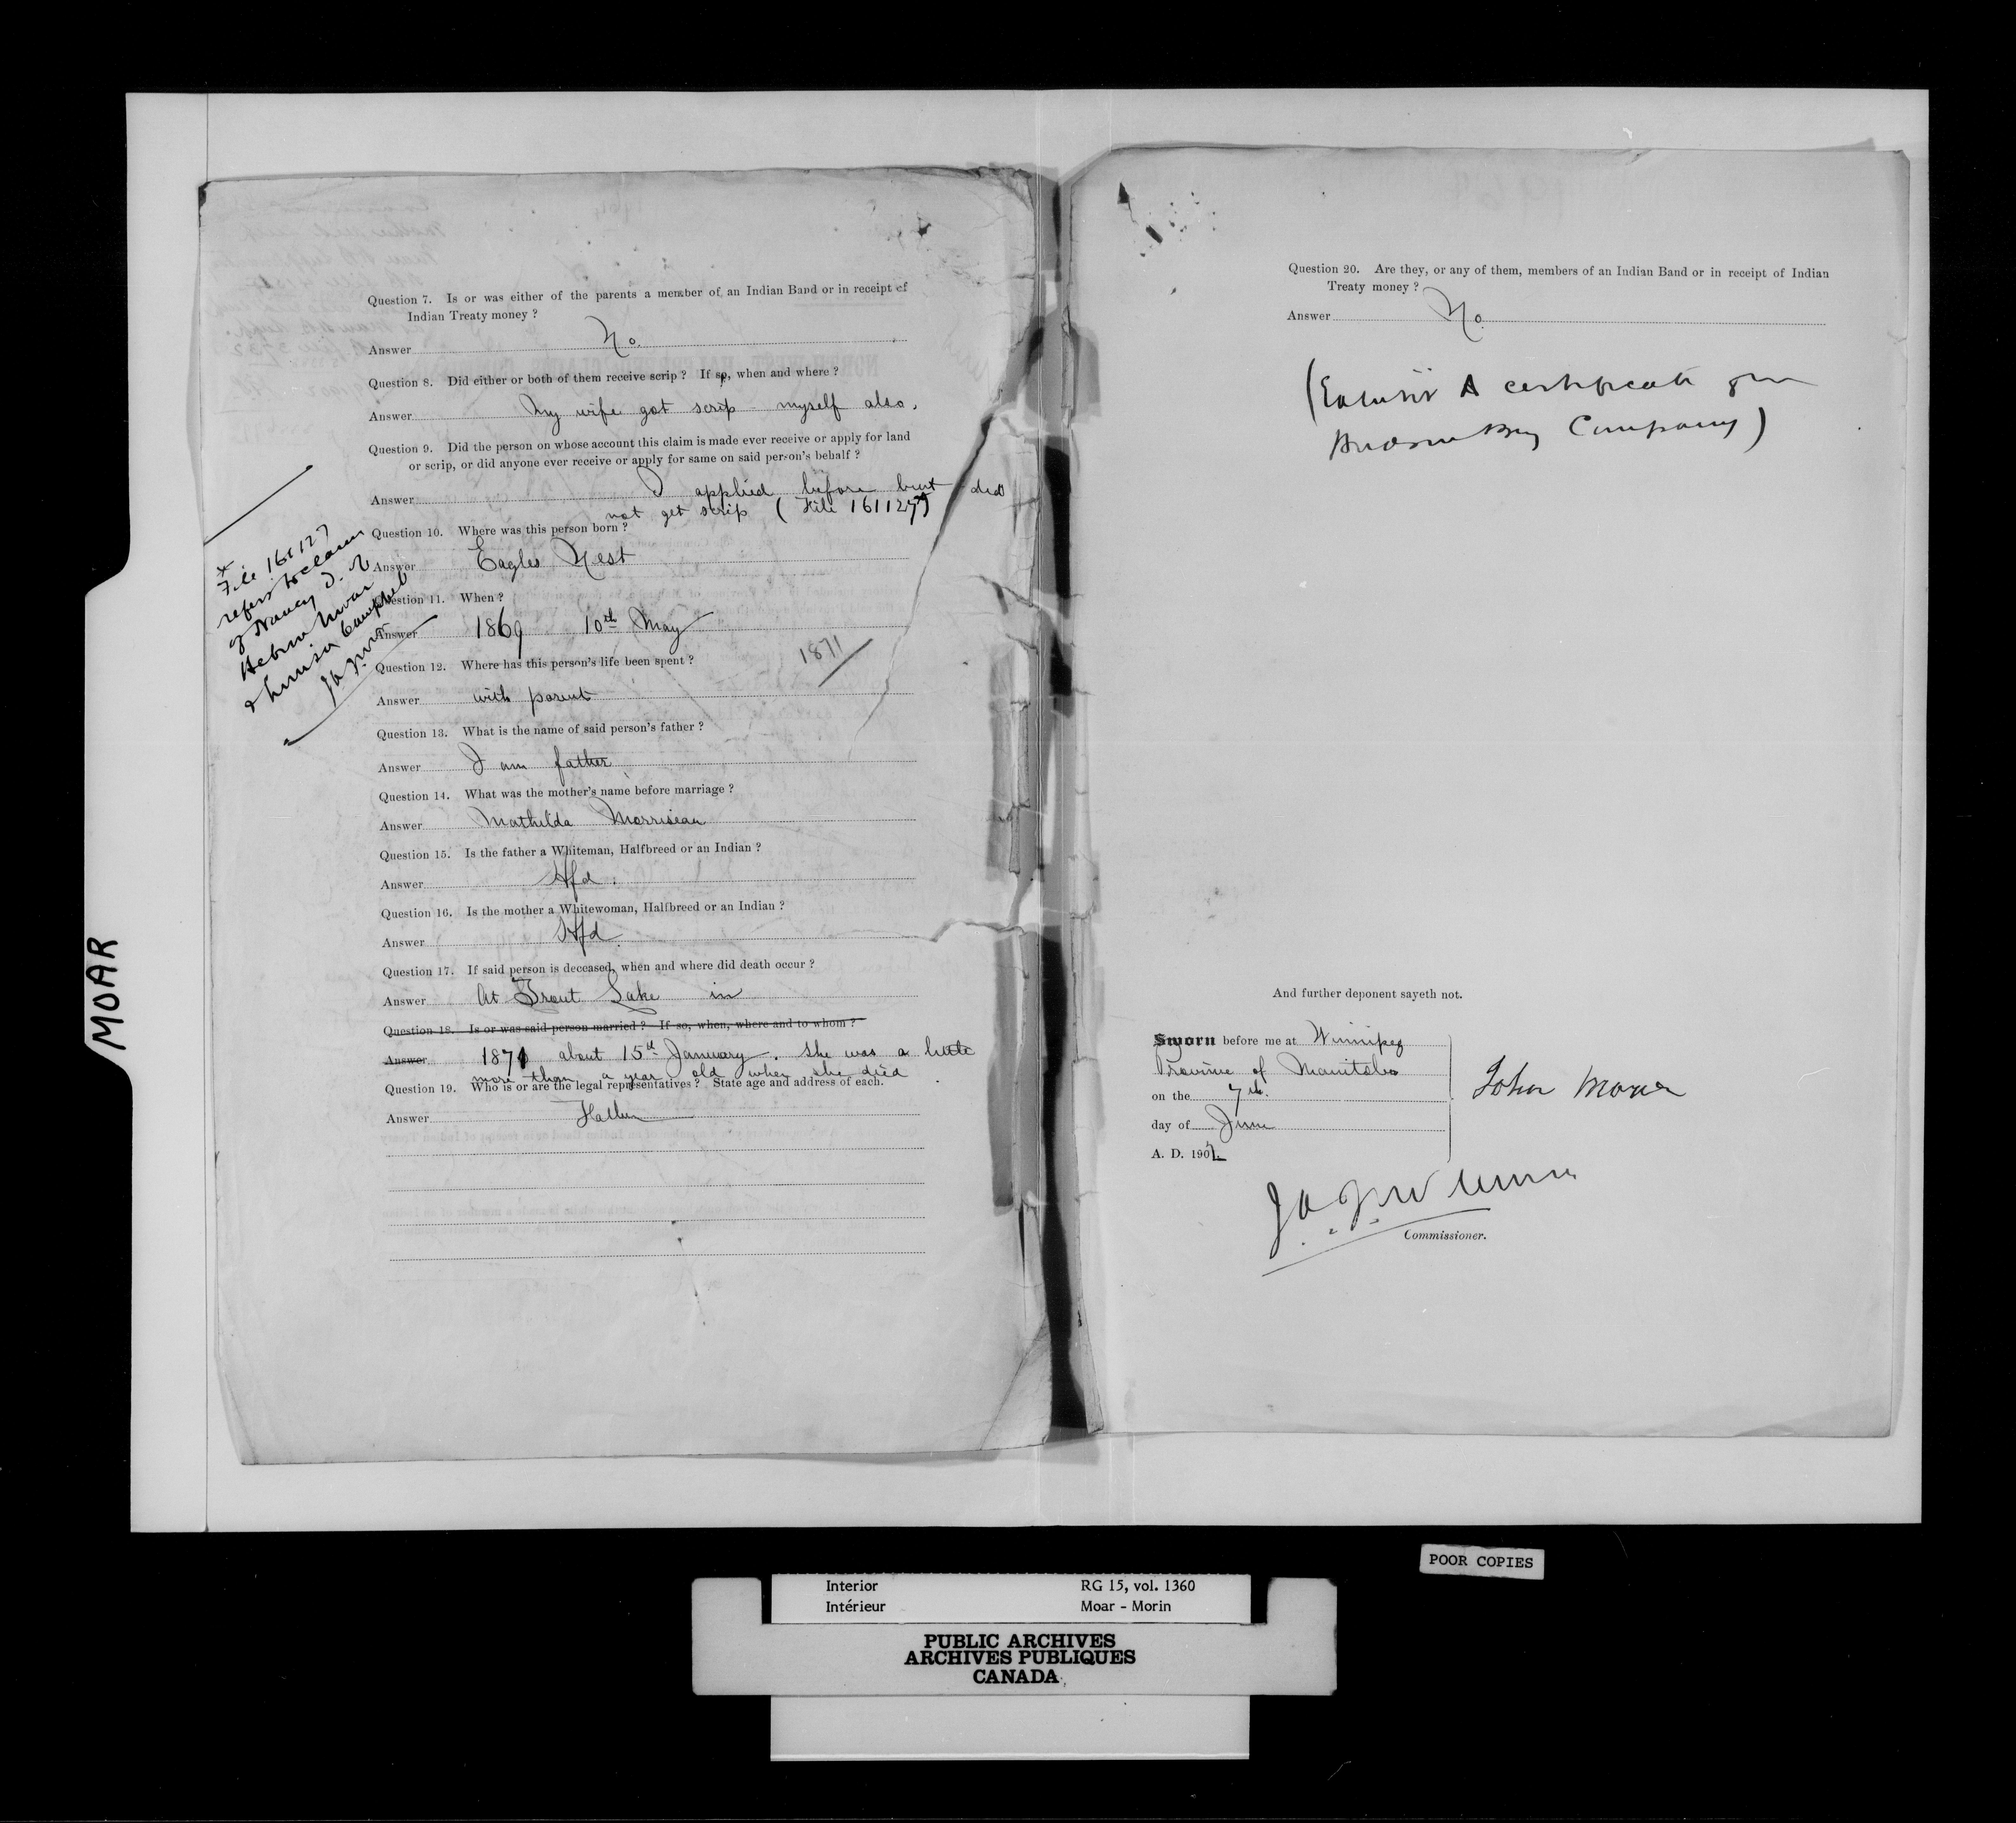 Question 7. Is or was either of the parents a member of an Indian Band or in receipt of
Indian Treaty money ?
Answer No.
Question 8. Did either or both of them receive scrip ? If so, when and where ?
Answer My wife got scrip myself also.
Question 9. Did the person on whose account this claim is made ever receive or apply for land
or scrip, or did anyone ever receive or apply for same on said person's behalf ?
Answer I applied before but did
not get scrip ( File 161127)
Question 10. Where was this person born ?
Answer Eagles Nest
Question 11. When ?
Answer 1869 10th May
1871
Question 12. Where has this person's life been spent ?
Answer with parent
Question 13. What is the name of said person's father ?
Answer I am father
Question 14. What was the mother's name before marriage ?
Answer Mathilda Morriseau
Question 15. Is the father a Whiteman, Halfbreed or an Indian ?
Answer Hfd.
Question 16. Is the mother a Whitewoman, Halfbreed or an Indian ?
Answer Hfd.
Question 17. If said person is deceased, when and where did death occur ?
Answer At Trout Lake in
Question 18. Is or was said person married ? If so, when, where and to whom ?
Answer 1871 about 15th January. She was a little
more than a year old when she died
Question 19. Who is or are the legal representatives ? State age and address of each.
Answer Father
File 161127
refers to claim
of Nancy
Moar
& Campbell
MOAR
Question 20. Are they, or any of them, members of an Indian Band or in receipt of Indian
Treaty money ?
Answer No.
(Exhibit A certificate from
Hudson Bay Company)
And further deponent sayeth not.
Sworn before me at Winnipeg
Province of Manitoba
on the 7th.
day of June
A. D. 190
John Moar
Commissioner.
POOR COPIES
Interior RG 15, vol. 1360
Intérieur Moar - Morin
PUBLIC ARCHIVES
ARCHIVES PUBLIQUES
CANADA